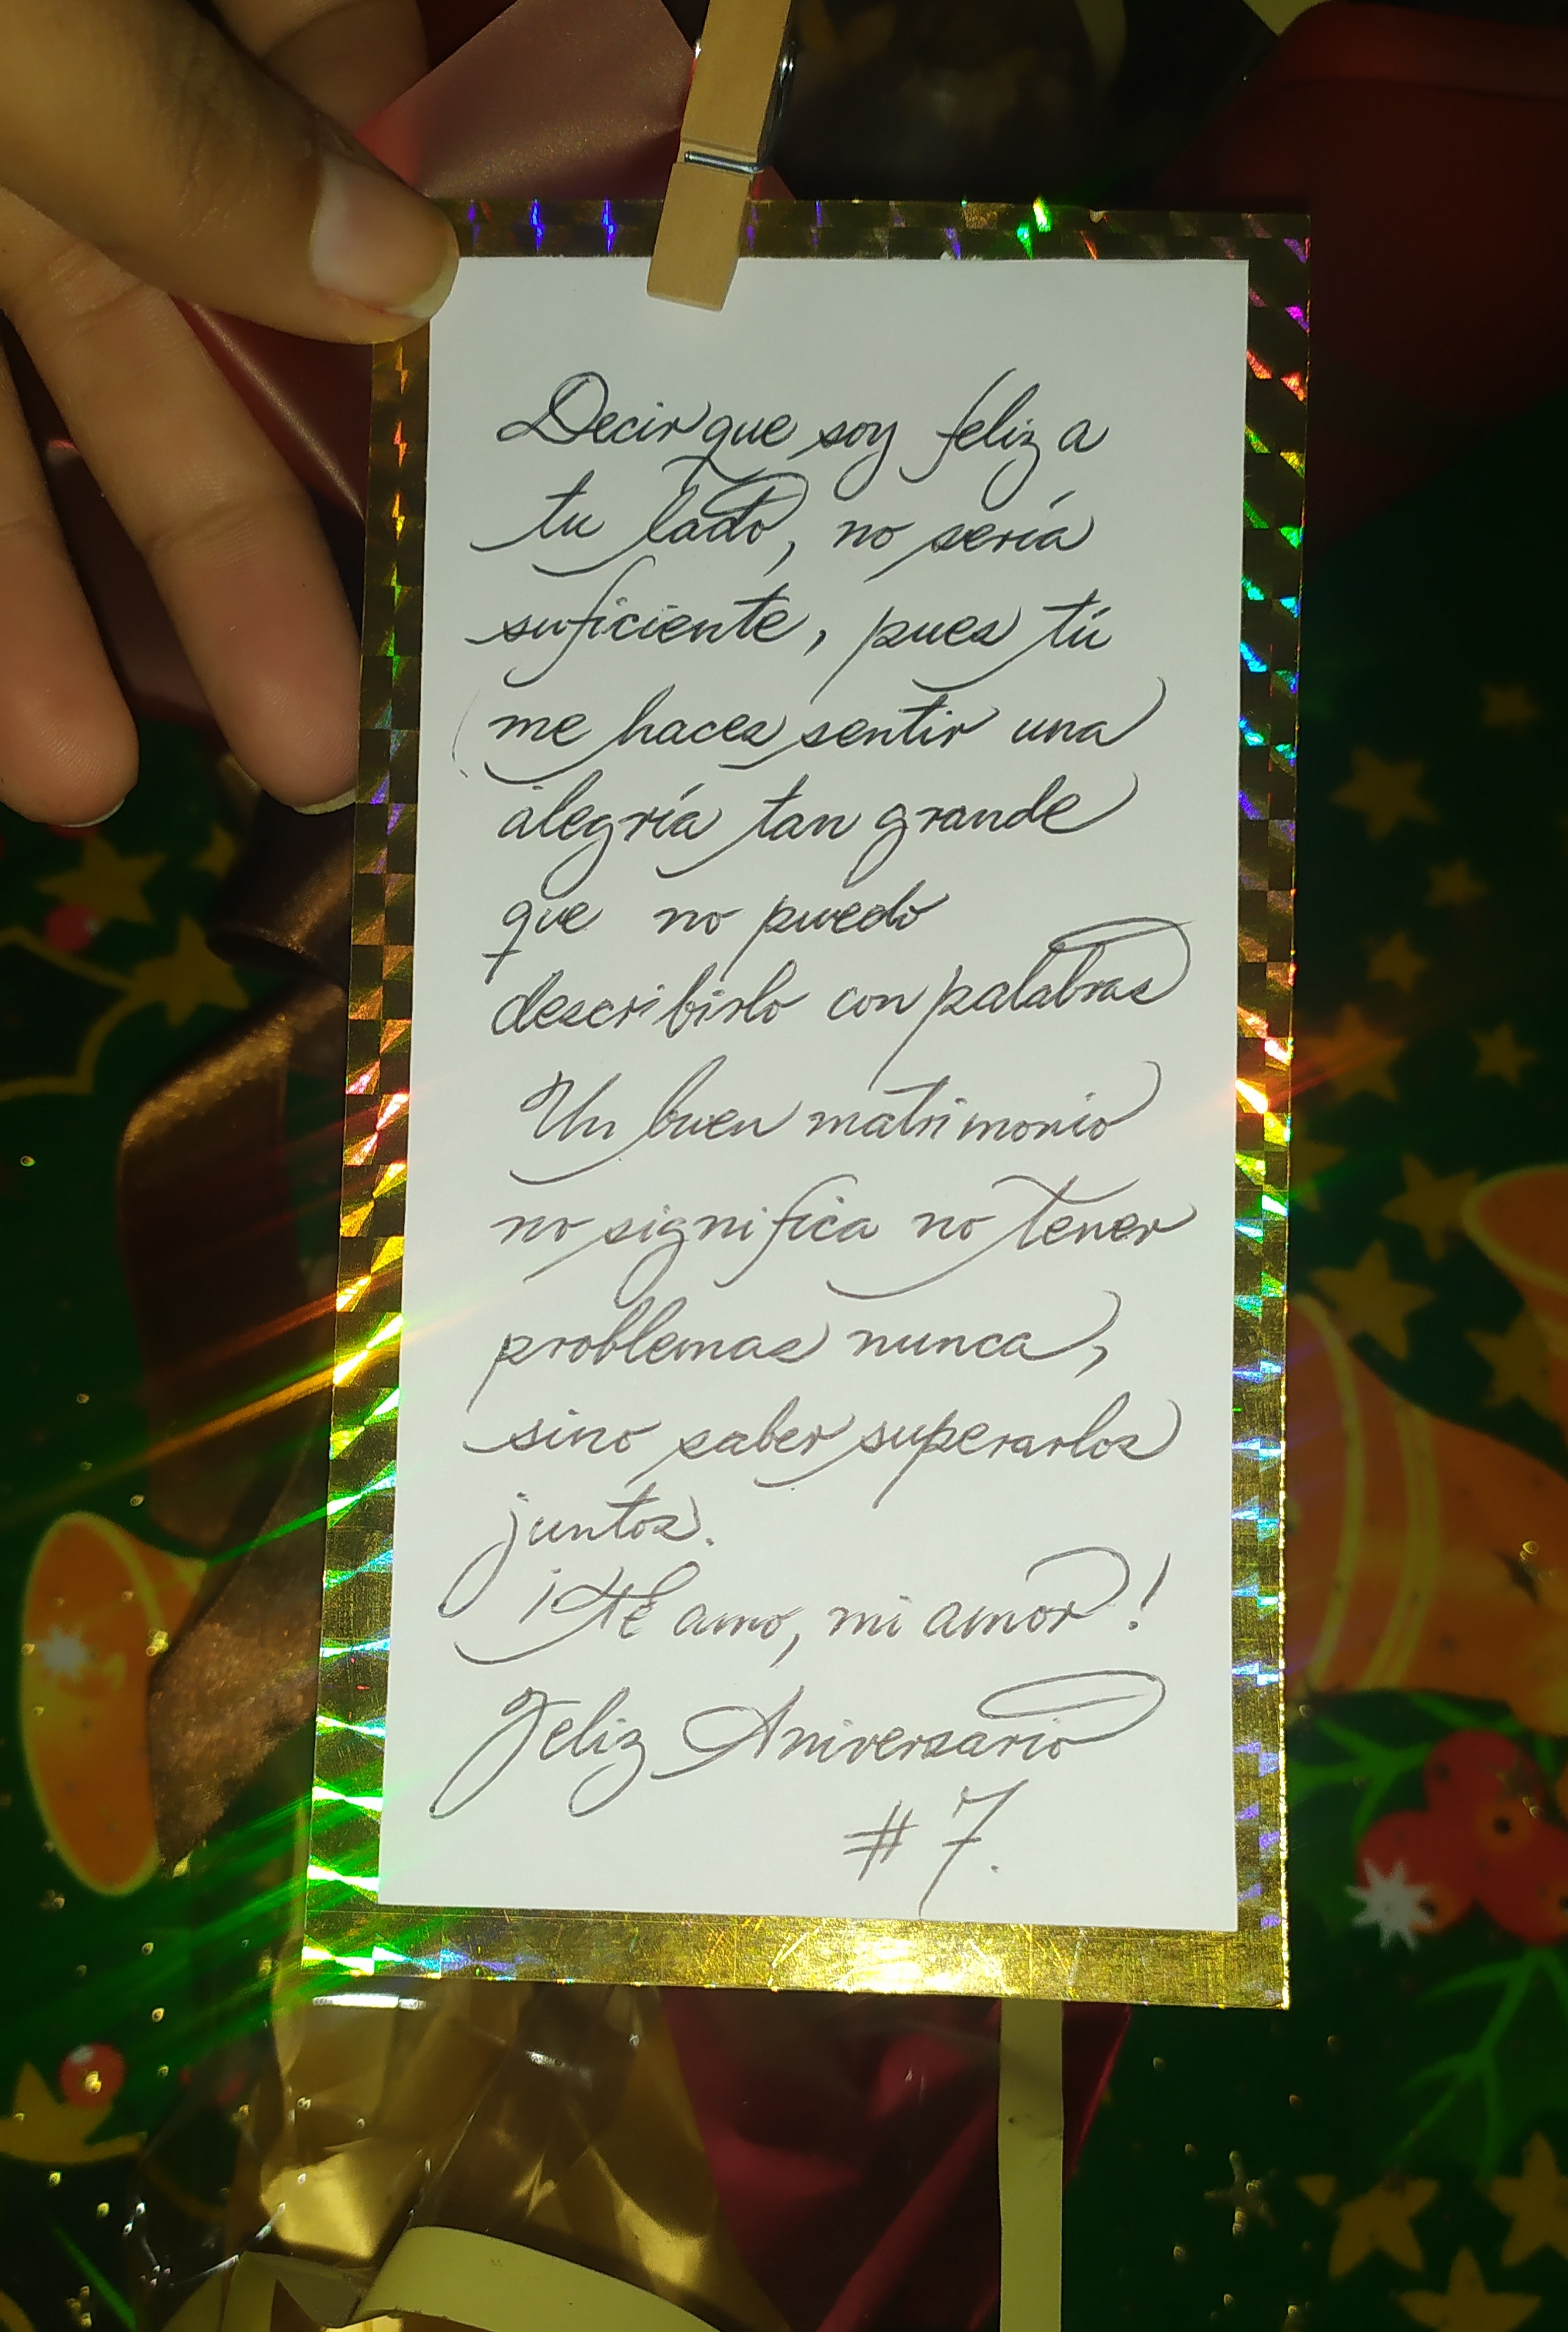 Decir que soy feliz a
tu lado, no sería
suficiente, pues tú
me haces sentir una
alegría tan grande
que no puedo
describirlo con palabras
Un buen matrimonio
no significa no tener
problemas nunca,
sino saber superarlos
juntos.
¡Te amo, mi amor!
Feliz Aniversario
# 7.